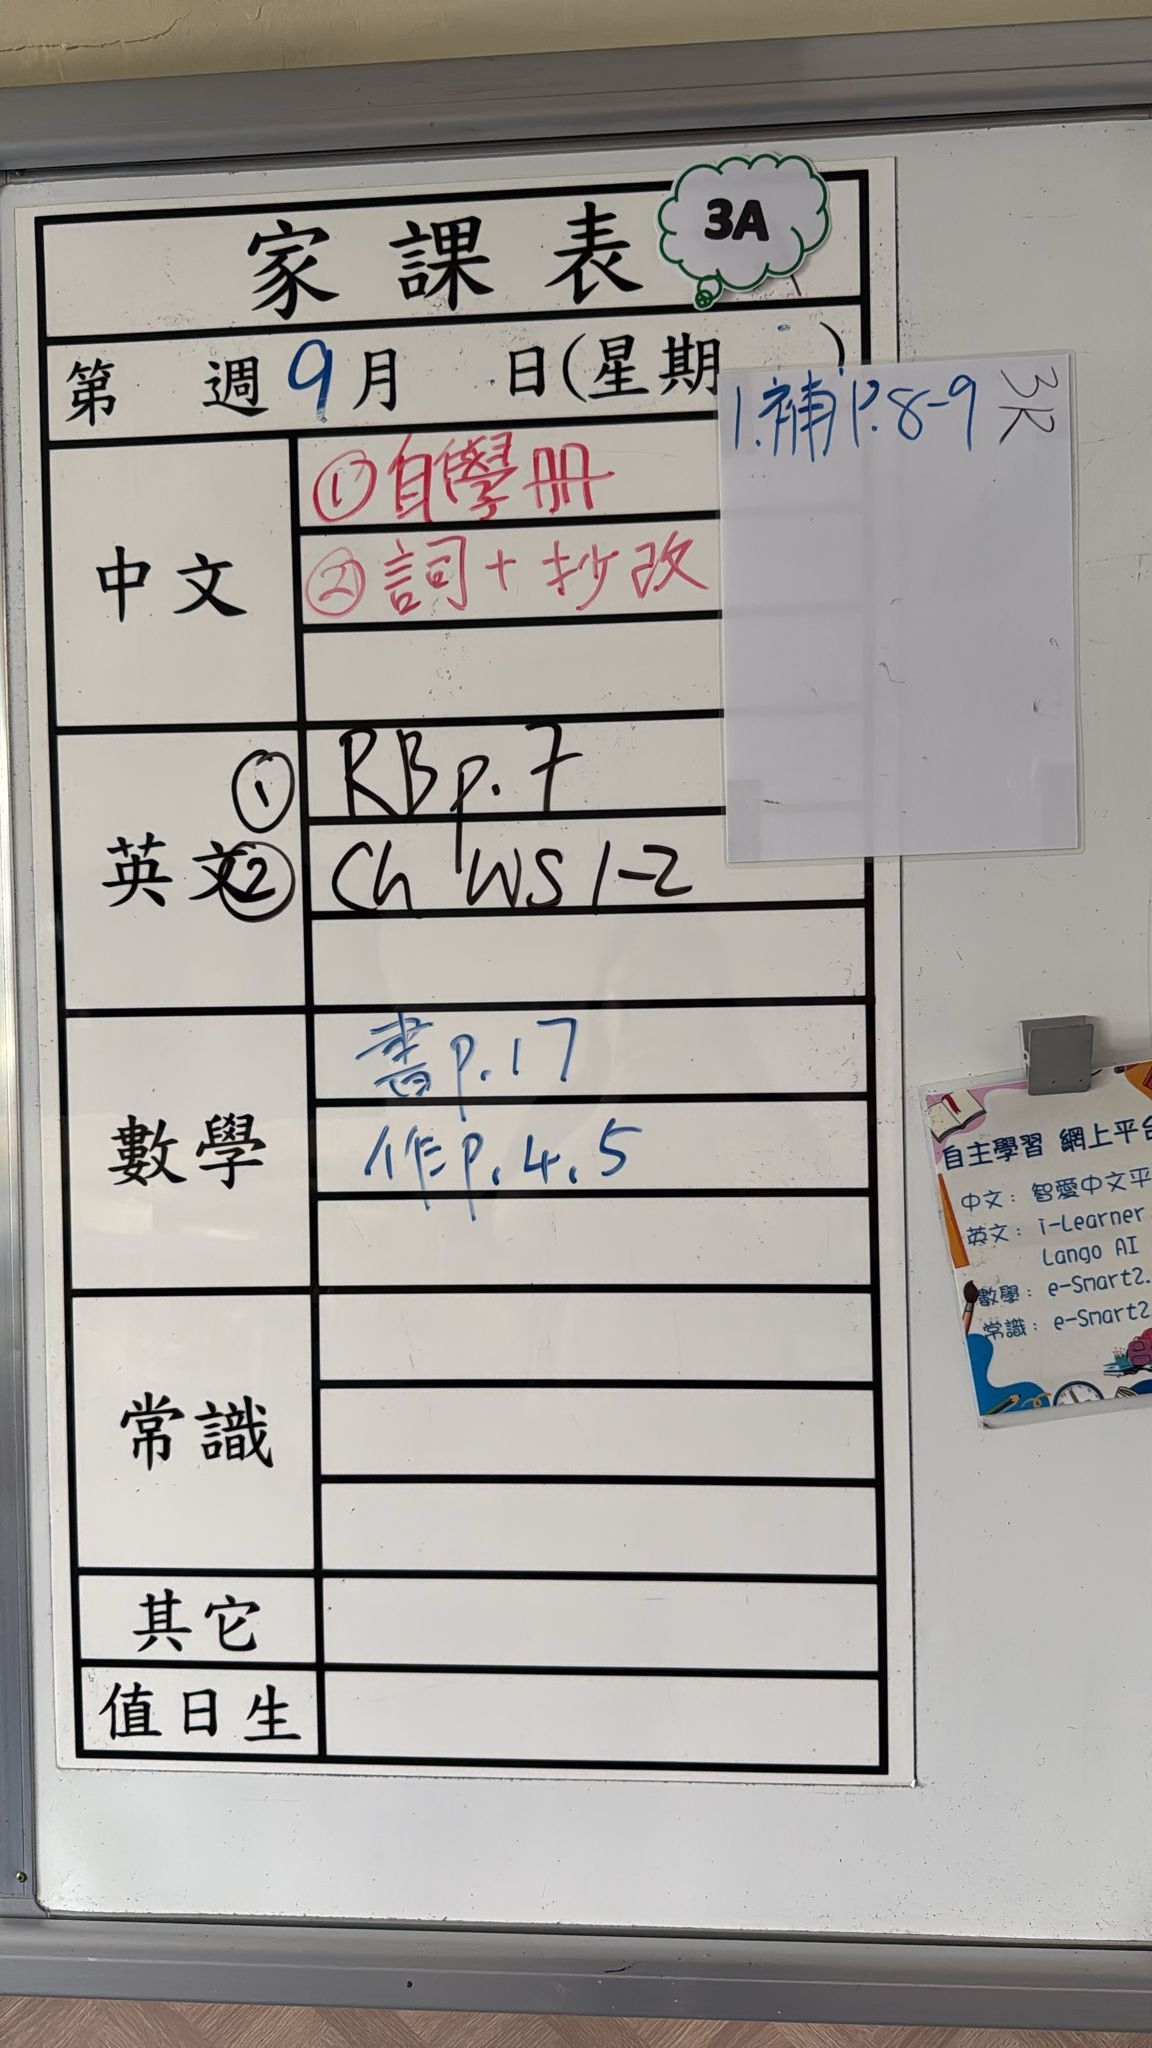 家課表
3A
第 週 9月 日(星期 )
3R
1.補P.8-9
中文
①自學冊
②詞+抄改
英文
① RB p.7
② Ch WS 1-2
數學
書p.17
作p.4.5
常識
其它
值日生
自主學習 網上平台
中文：智愛中文平
英文：i-Learner
Lango AI
數學：e-Smart2.
常識：e-Smart2